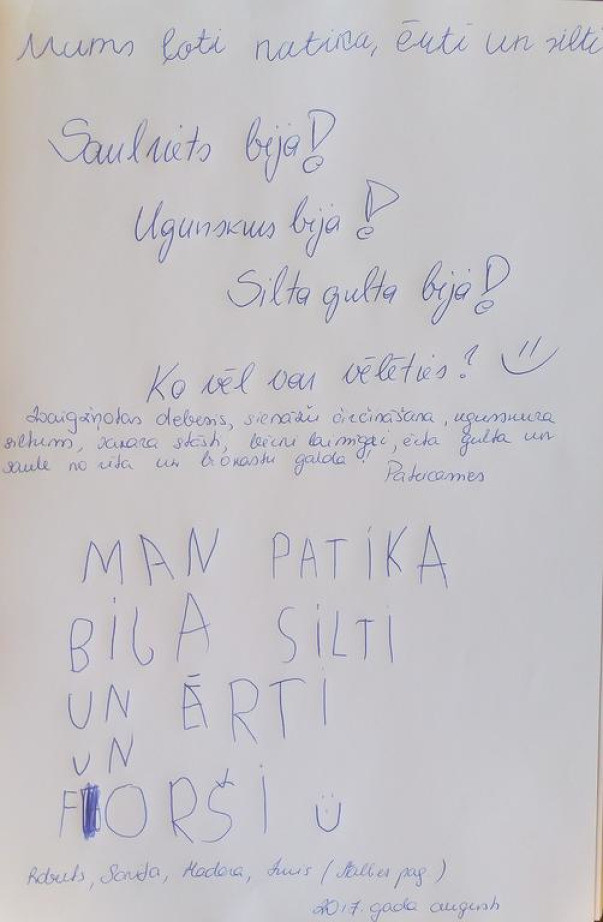 Mums ļoti patika, ērti un silti
Saulriets bija!
Ugunskurs bija!
Silta gulta bija!
Ko vēl var vēlēties?
Zvaigžņotas debesis, sienāžu čirčināšana, ugunskura
siltums, vakara stāsti, bērni laimīgi, ērta gulta un
saule no rīta un brokastu galda!
Pateicamies
MAN PATIKA
BIJA SILTI
UN ĒRTI
UN
FORŠI
Roberts, Santa, Madara, (pag.)
2017. gada augusts